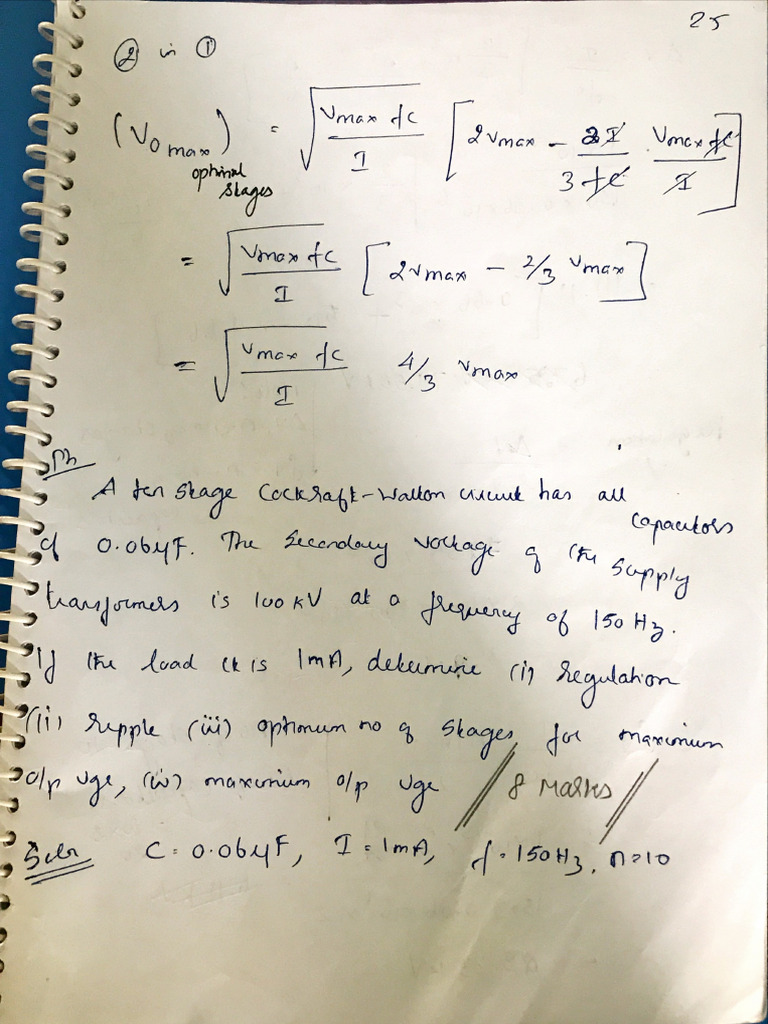 25
② in ①
(V₀ max) optimal stages = √(Vmax fC / I) [2Vmax - 2I / 3fC Vmax fC / I]
= √(Vmax fC / I) [2Vmax - 2/3 Vmax]
= √(Vmax fC / I) 4/3 Vmax
Pb
A ten stage Cockraft-Walton circuit has all capacitors
of 0.06μF. The Secondary voltage of the supply
transformers is 100kV at a frequency of 150Hz.
If the load ct is 1mA, determine (i) Regulation
(ii) ripple (iii) optimum no of stages for maximum
o/p vge, (iv) maximum o/p vge // 8 Marks //
Soln C = 0.06μF, I = 1mA, f = 150Hz, n=10